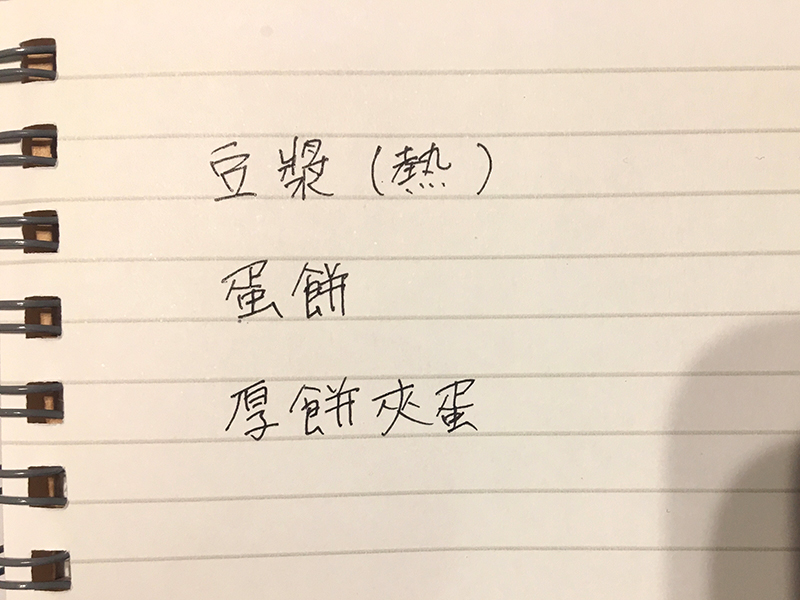 豆漿(熱)
蛋餅
厚餅夾蛋